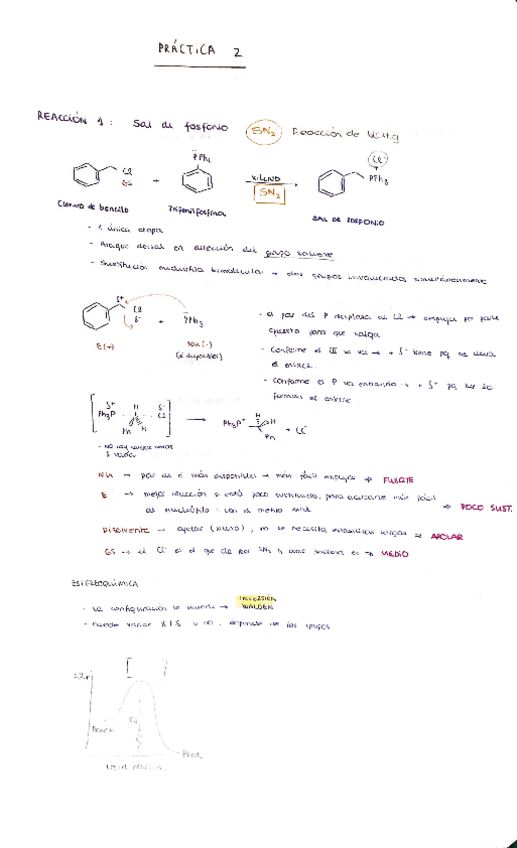 PRÁCTICA 2
REACCIÓN 1: Sal de fosfonio SN2 Reacción de Wittig
PPh3
Cl
GS
+
XILENO
SN2
Cl-
PPh3
Cloruro de bencilo
Trifenilfosfina
SAL DE FOSFONIO
- 1 única etapa
- Ataque dorsal en dirección del grupo saliente
- Sustitución nucleófila bimolecular → dos grupos involucrados simultáneamente
δ+
Cl
δ-
+
PPh3
E(+)
Nu(-)
(e- disponibles)
- el par del P desplaza al Cl → empuja por parte
opuesta para que salga
- Conforme el Cl se va → + δ- tiene pq se lleva
el enlace.
- Conforme el P va entrando → + δ+ pq
formar el enlace.
δ+ H δ-
Ph3P Cl
Ph H
Ph3P+ H H
Ph
+ Cl-
Nu → par de e- más disponibles → más fácil empuje → FUERTE
E → mejor reacción si está poco sustituido, para acercarse más fácil
al nucleófilo → POCO SUST.
DISOLVENTE → apolar (xileno), no se necesita estabilizar cargas → APOLAR
GS → el Cl- es el que da por SN2 → MEDIO
ESTEREOQUÍMICA
- La configuración se invierte → INVERSIÓN WALDEN
- Puede variar R/S o no, depende de los grupos
React
Ea
Prod.